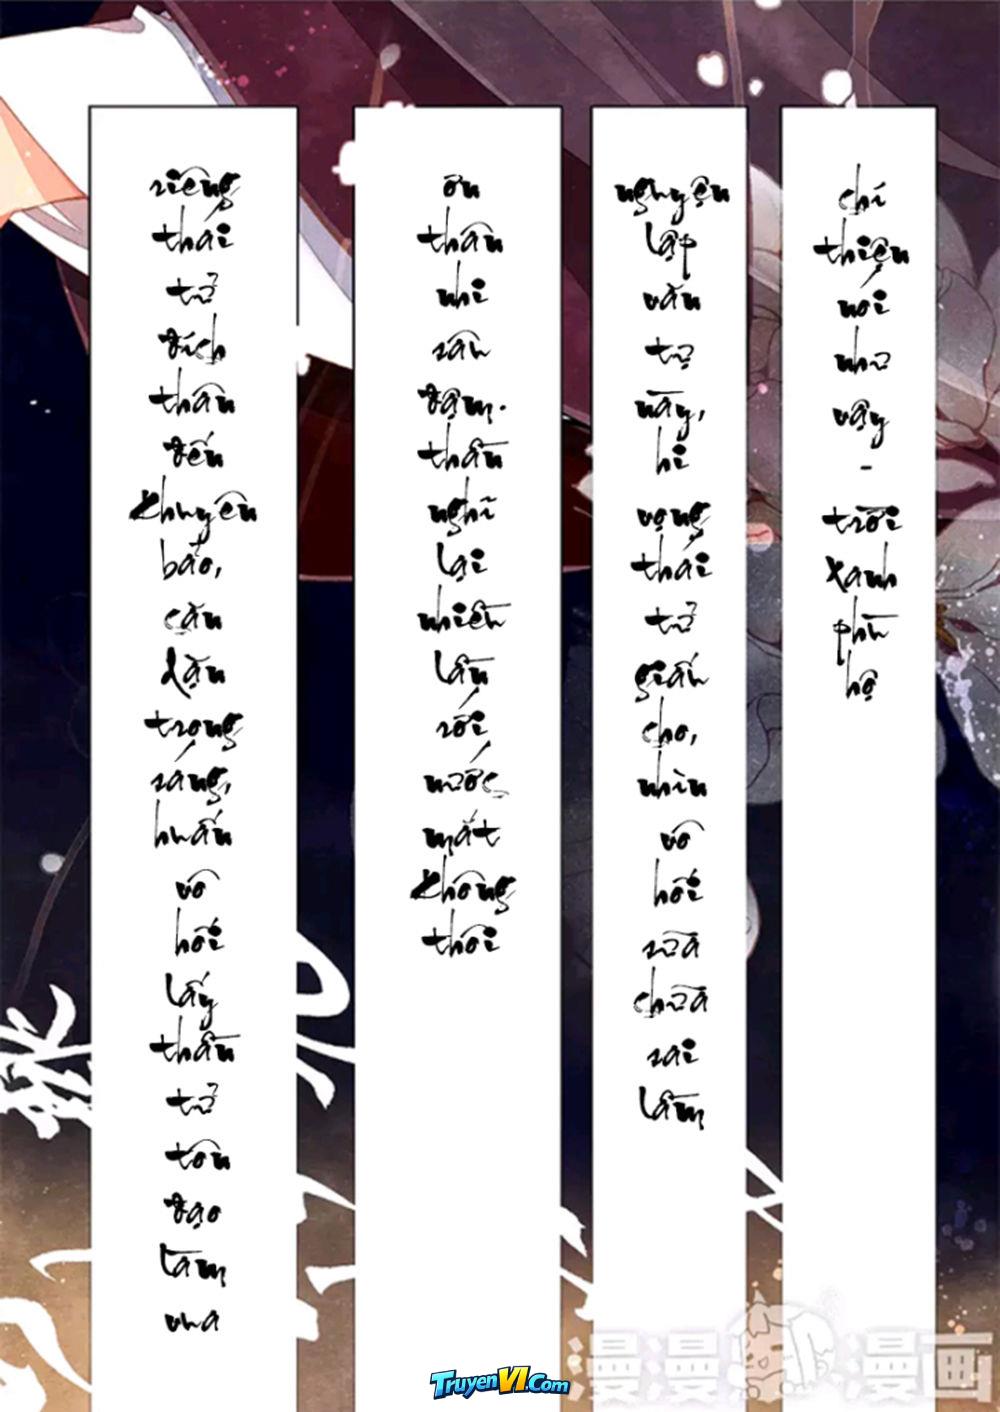 riêng
thái
tử
đích
thân
đến
khuyên
bảo,
căn
dặn
trọng
sáng,
huấn
vô
hối
lấy
thần
tử
tôn
đạo
làm
vua
ôn
thần
nhi
sân
đậm.
thần
nghĩ
lại
nhiều
lần
rồi
nước
mắt
không
thôi
nguyện
lập
văn
tự
này,
hi
vọng
thái
tử
giấu
cho,
nhìn
vô
hối
sửa
chữa
sai
lầm
chí
thiện
nói
như
vậy
-
trời
xanh
phù
hộ
漫漫漫画
TruyenVI.Com